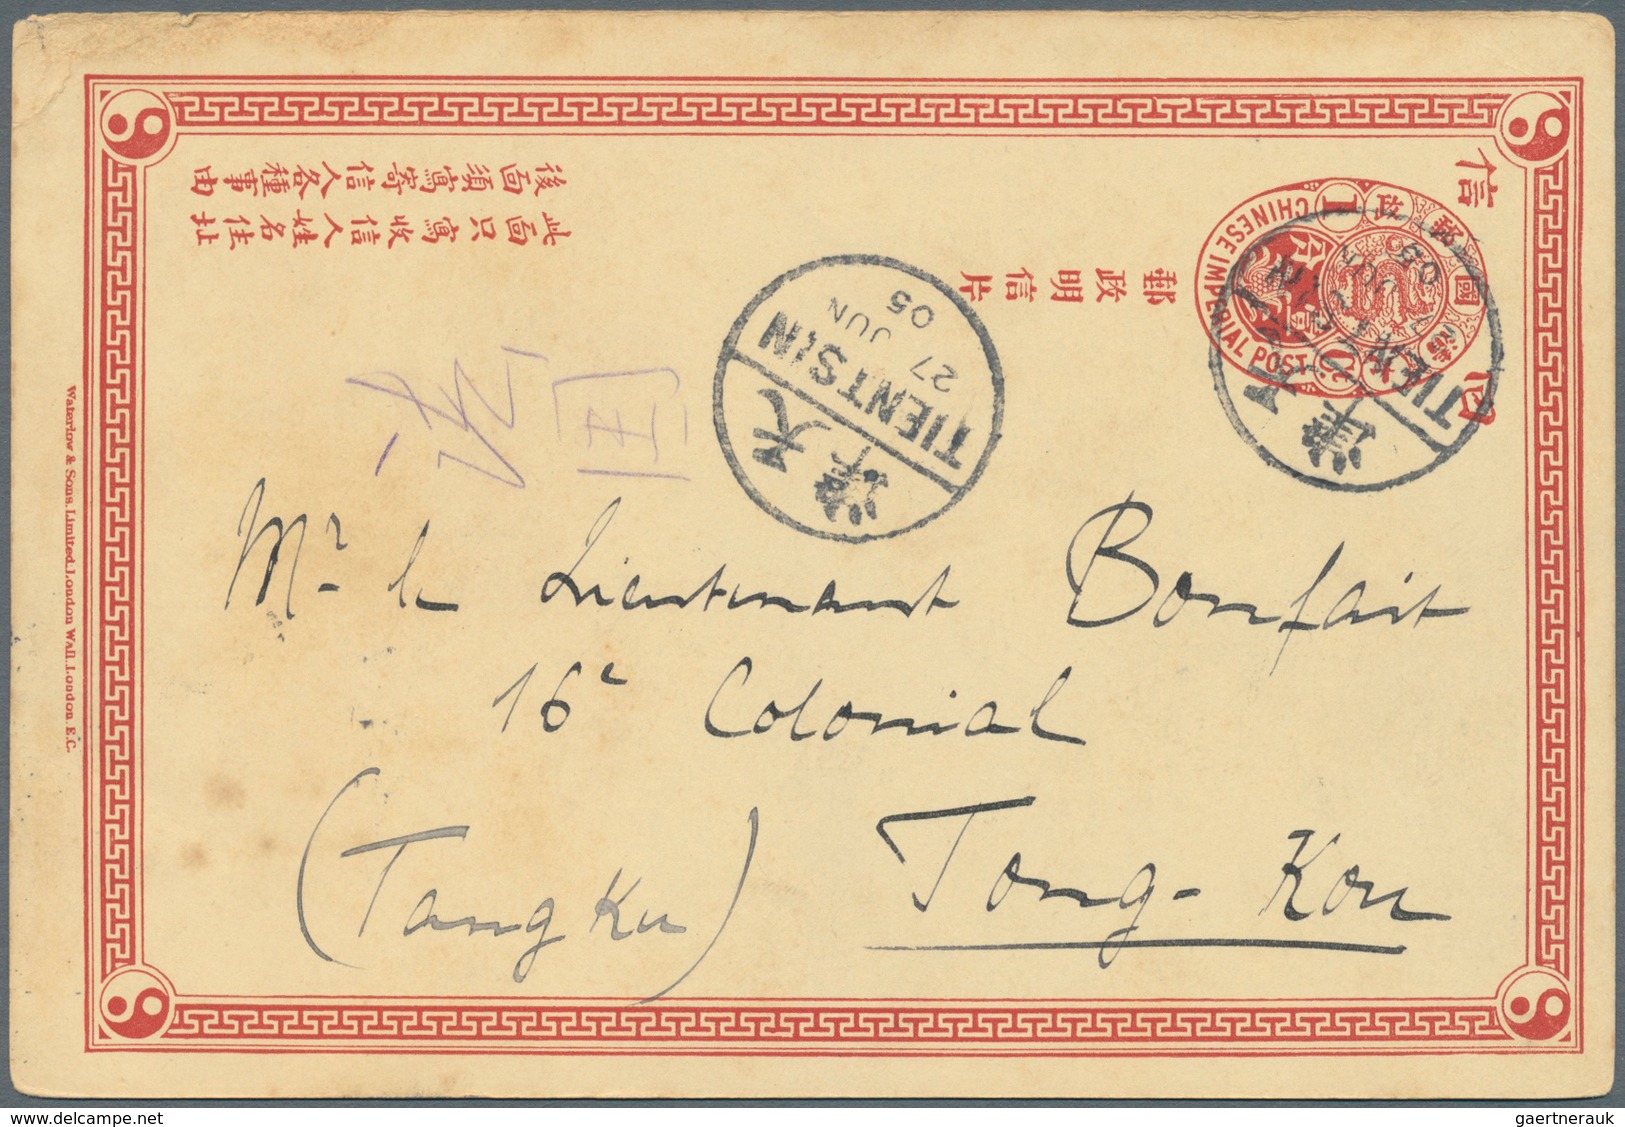 郵政明信片
此面只寫收信人姓名住址
後面須寫寄信人各種事由
大清國郵政
CHINESE IMPERIAL POST
1
TIENTSIN
天津
27 JUN 05
TIENTSIN
27 JUN 05
天津
Mr. le Lieutenant Bonfait
16e Colonial
Tong-Kou
(TangKu)
Waterlow & Sons Limited, London Wall, London. E.C.
gaertnerauk
delcampe.net